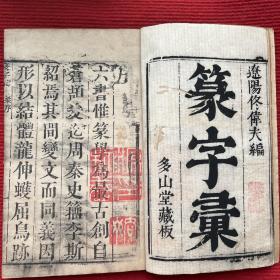 遼陽佟偉夫編
篆字彙
多山堂藏板
六書惟篆學為最古創自
蒼頡爰迄周秦史籀李斯
紹焉其間變文而同義因
形以結體龍伸蠖屈鳥跡